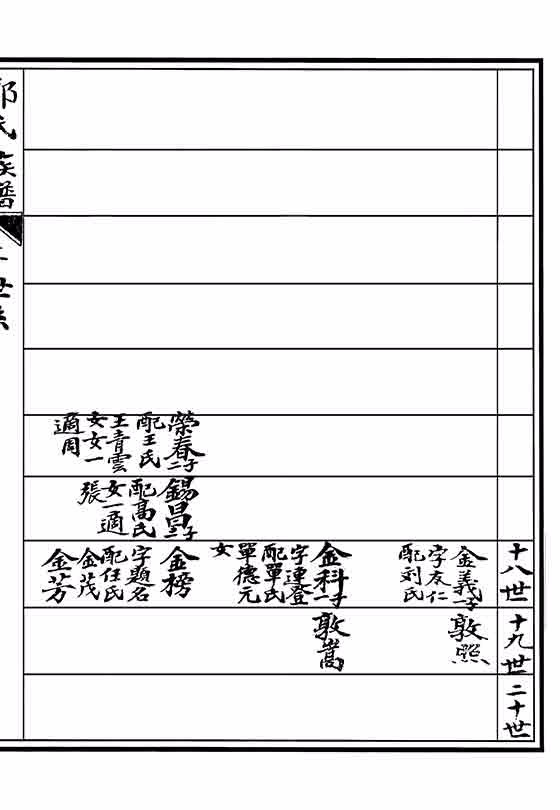 十八世
金義一子
字友仁
配刘氏
金科一子
字連登
配單氏
單德元
女
金榜
字題名
配任氏
金茂
金芳
十九世
敦照
敦嵩
二十世
榮春二子
配王氏
王青雲
女女一
適周
錫昌三子
配高氏
女一適
張
氏族譜
世系